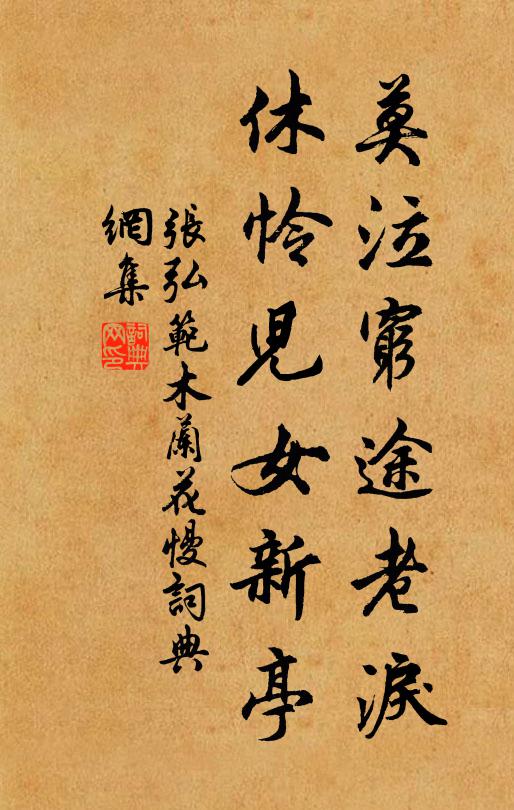 莫泣窮途老淚
休怜兒女新亭
張弘範木蘭花慢詞典
網集
詞典網印